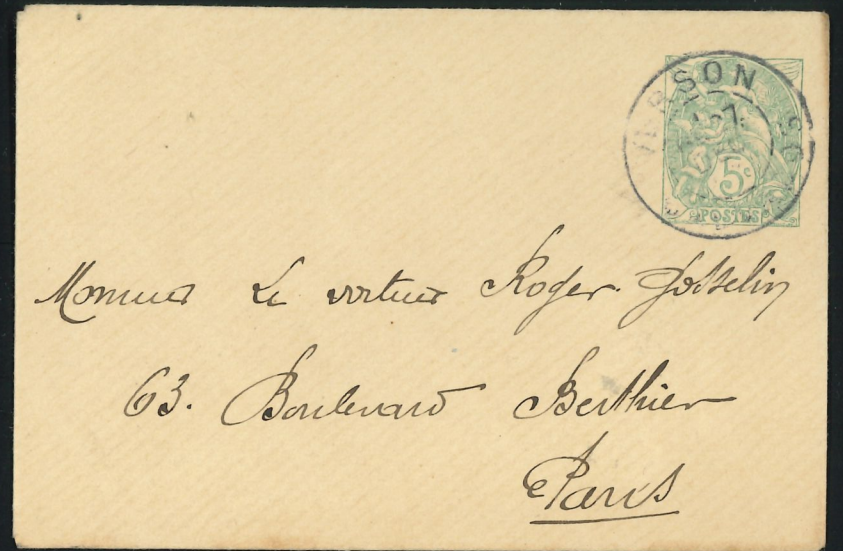 VERSON
5c
POSTES
Monsieur Le docteur Roger Josselin
63. Boulevard Berthier
Paris